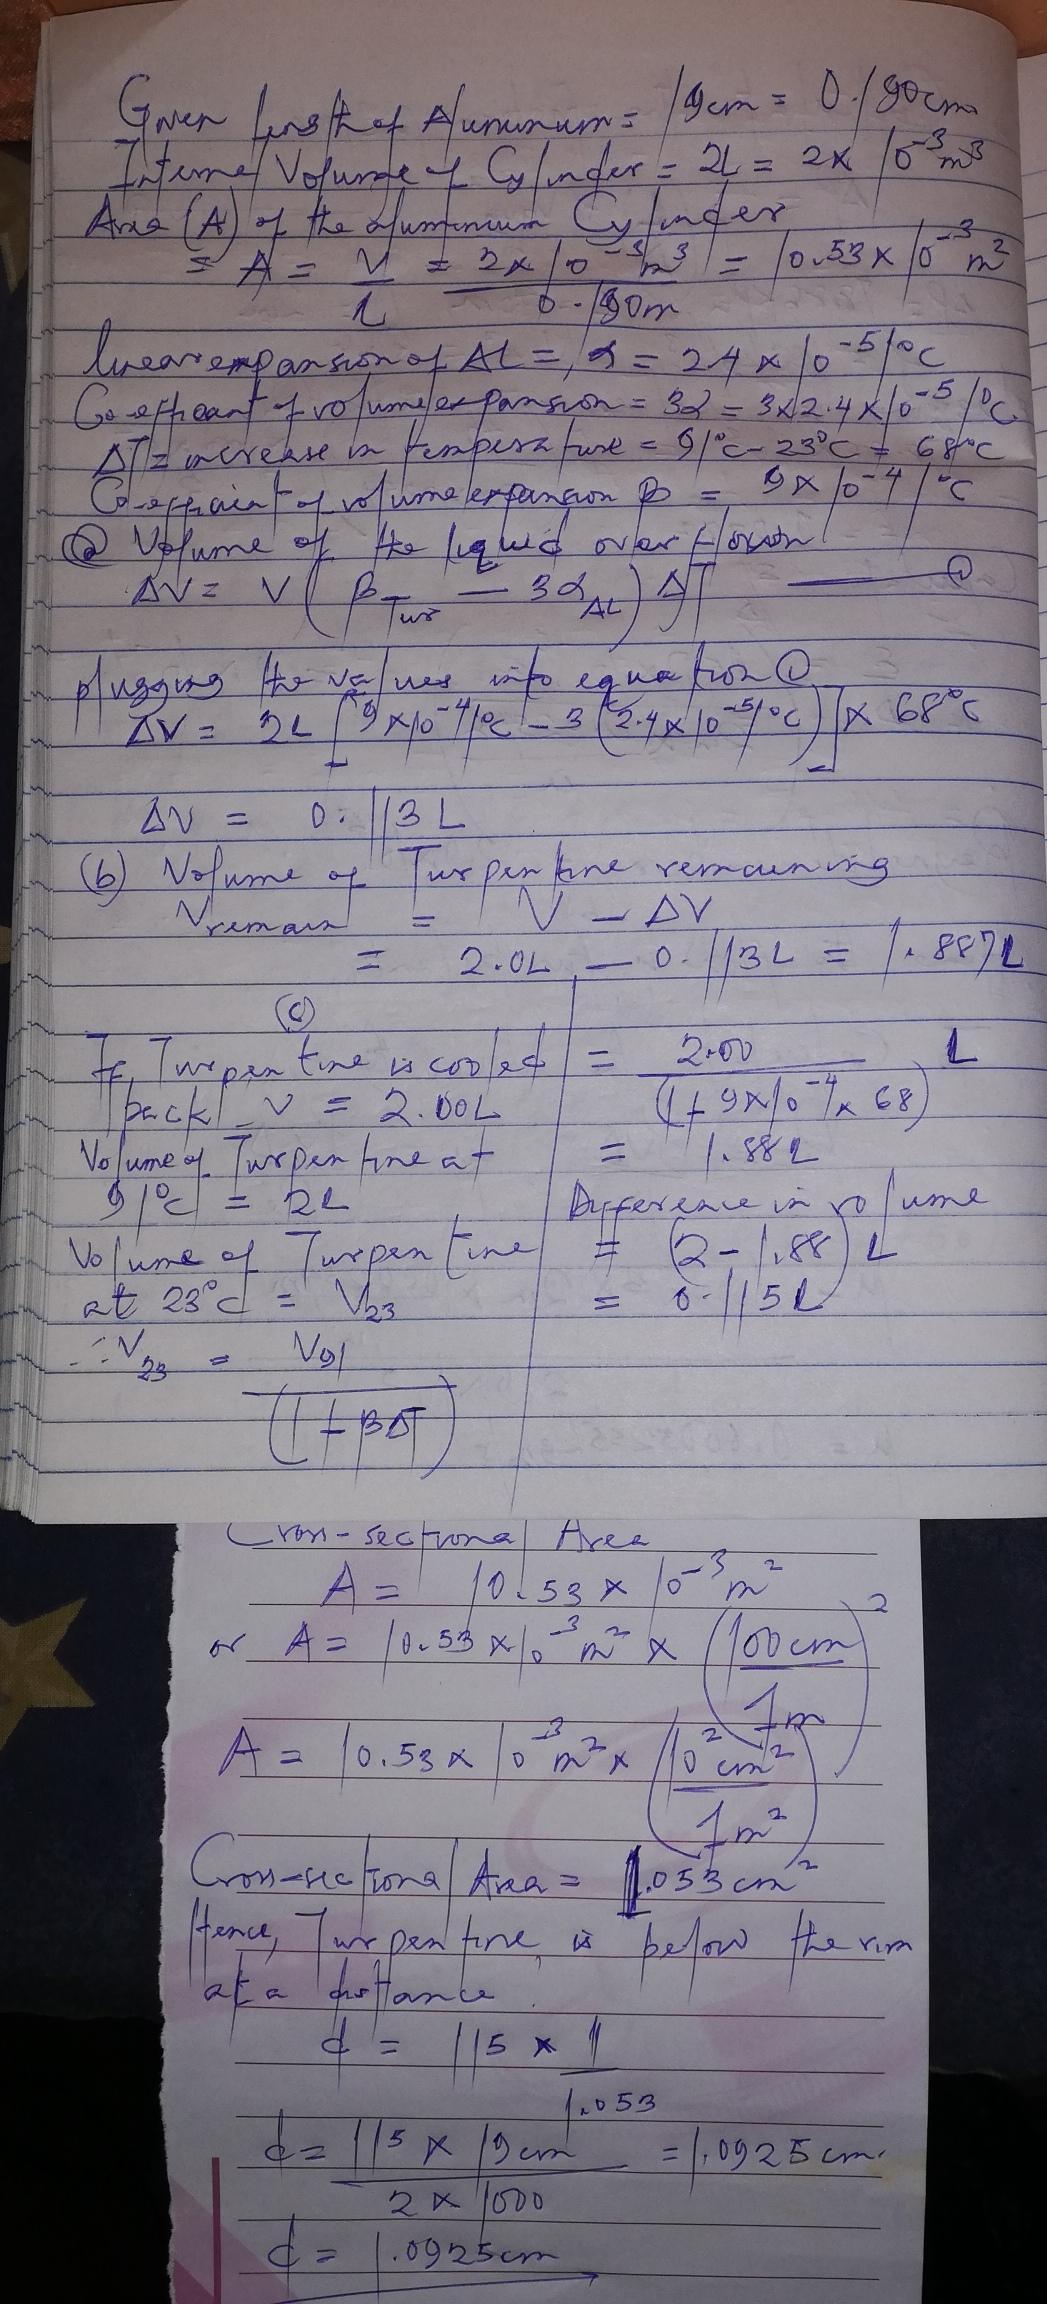 Given length of Aluminum = 19cm = 0.190cm
Internal Volume of Cylinder = 2L = 2x 10⁻³m³
Area (A) of the aluminium Cylinder
= A = V/L = 2x10⁻³m³/0.190m = 10.53x10⁻³m²
linear expansion of AL = α = 2.4 x 10⁻⁵/°C
Co-efficient of volume expansion = 3α = 3x2.4x10⁻⁵/°C
ΔT = increase in temperature = 91°C - 23°C = 68°C
Co-efficient of volume expansion β = 9x10⁻⁴/°C
(a) Volume of the liquid over flown
ΔV = V(β_Tur - 3α_AL)ΔT —— (1)
plugging the values into equation (1)
ΔV = 2L [9x10⁻⁴/°C - 3(2.4x10⁻⁵/°C)] x 68°C
ΔV = 0.113L
(b) Volume of Turpentine remaining
V_remain = V - ΔV
= 2.0L - 0.113L = 1.887L
(c)
If Turpentine is cooled
back V = 2.00L
Volume of Turpentine at
91°C = 2L
Volume of Turpentine
at 23°C = V₂₃
∴ V₂₃ = V91/(1+βΔT)
= 2.00/(1+9x10⁻⁴x68) L
= 1.88L
Difference in volume
= (2-1.88)L
= 0.115L
Cross-sectional Area
A = 10.53x10⁻³m²
or A = 10.53x10⁻³m² x (100cm/1m)²
A = 10.53x10⁻³m² x (10²cm²/1m²)
Cross-sectional Area = 1.053cm²
Hence, Turpentine is below the rim
at a distance
d = 115 x 1/1.053
d = 115x19cm/2x1000 = 1.0925cm.
d = 1.0925cm